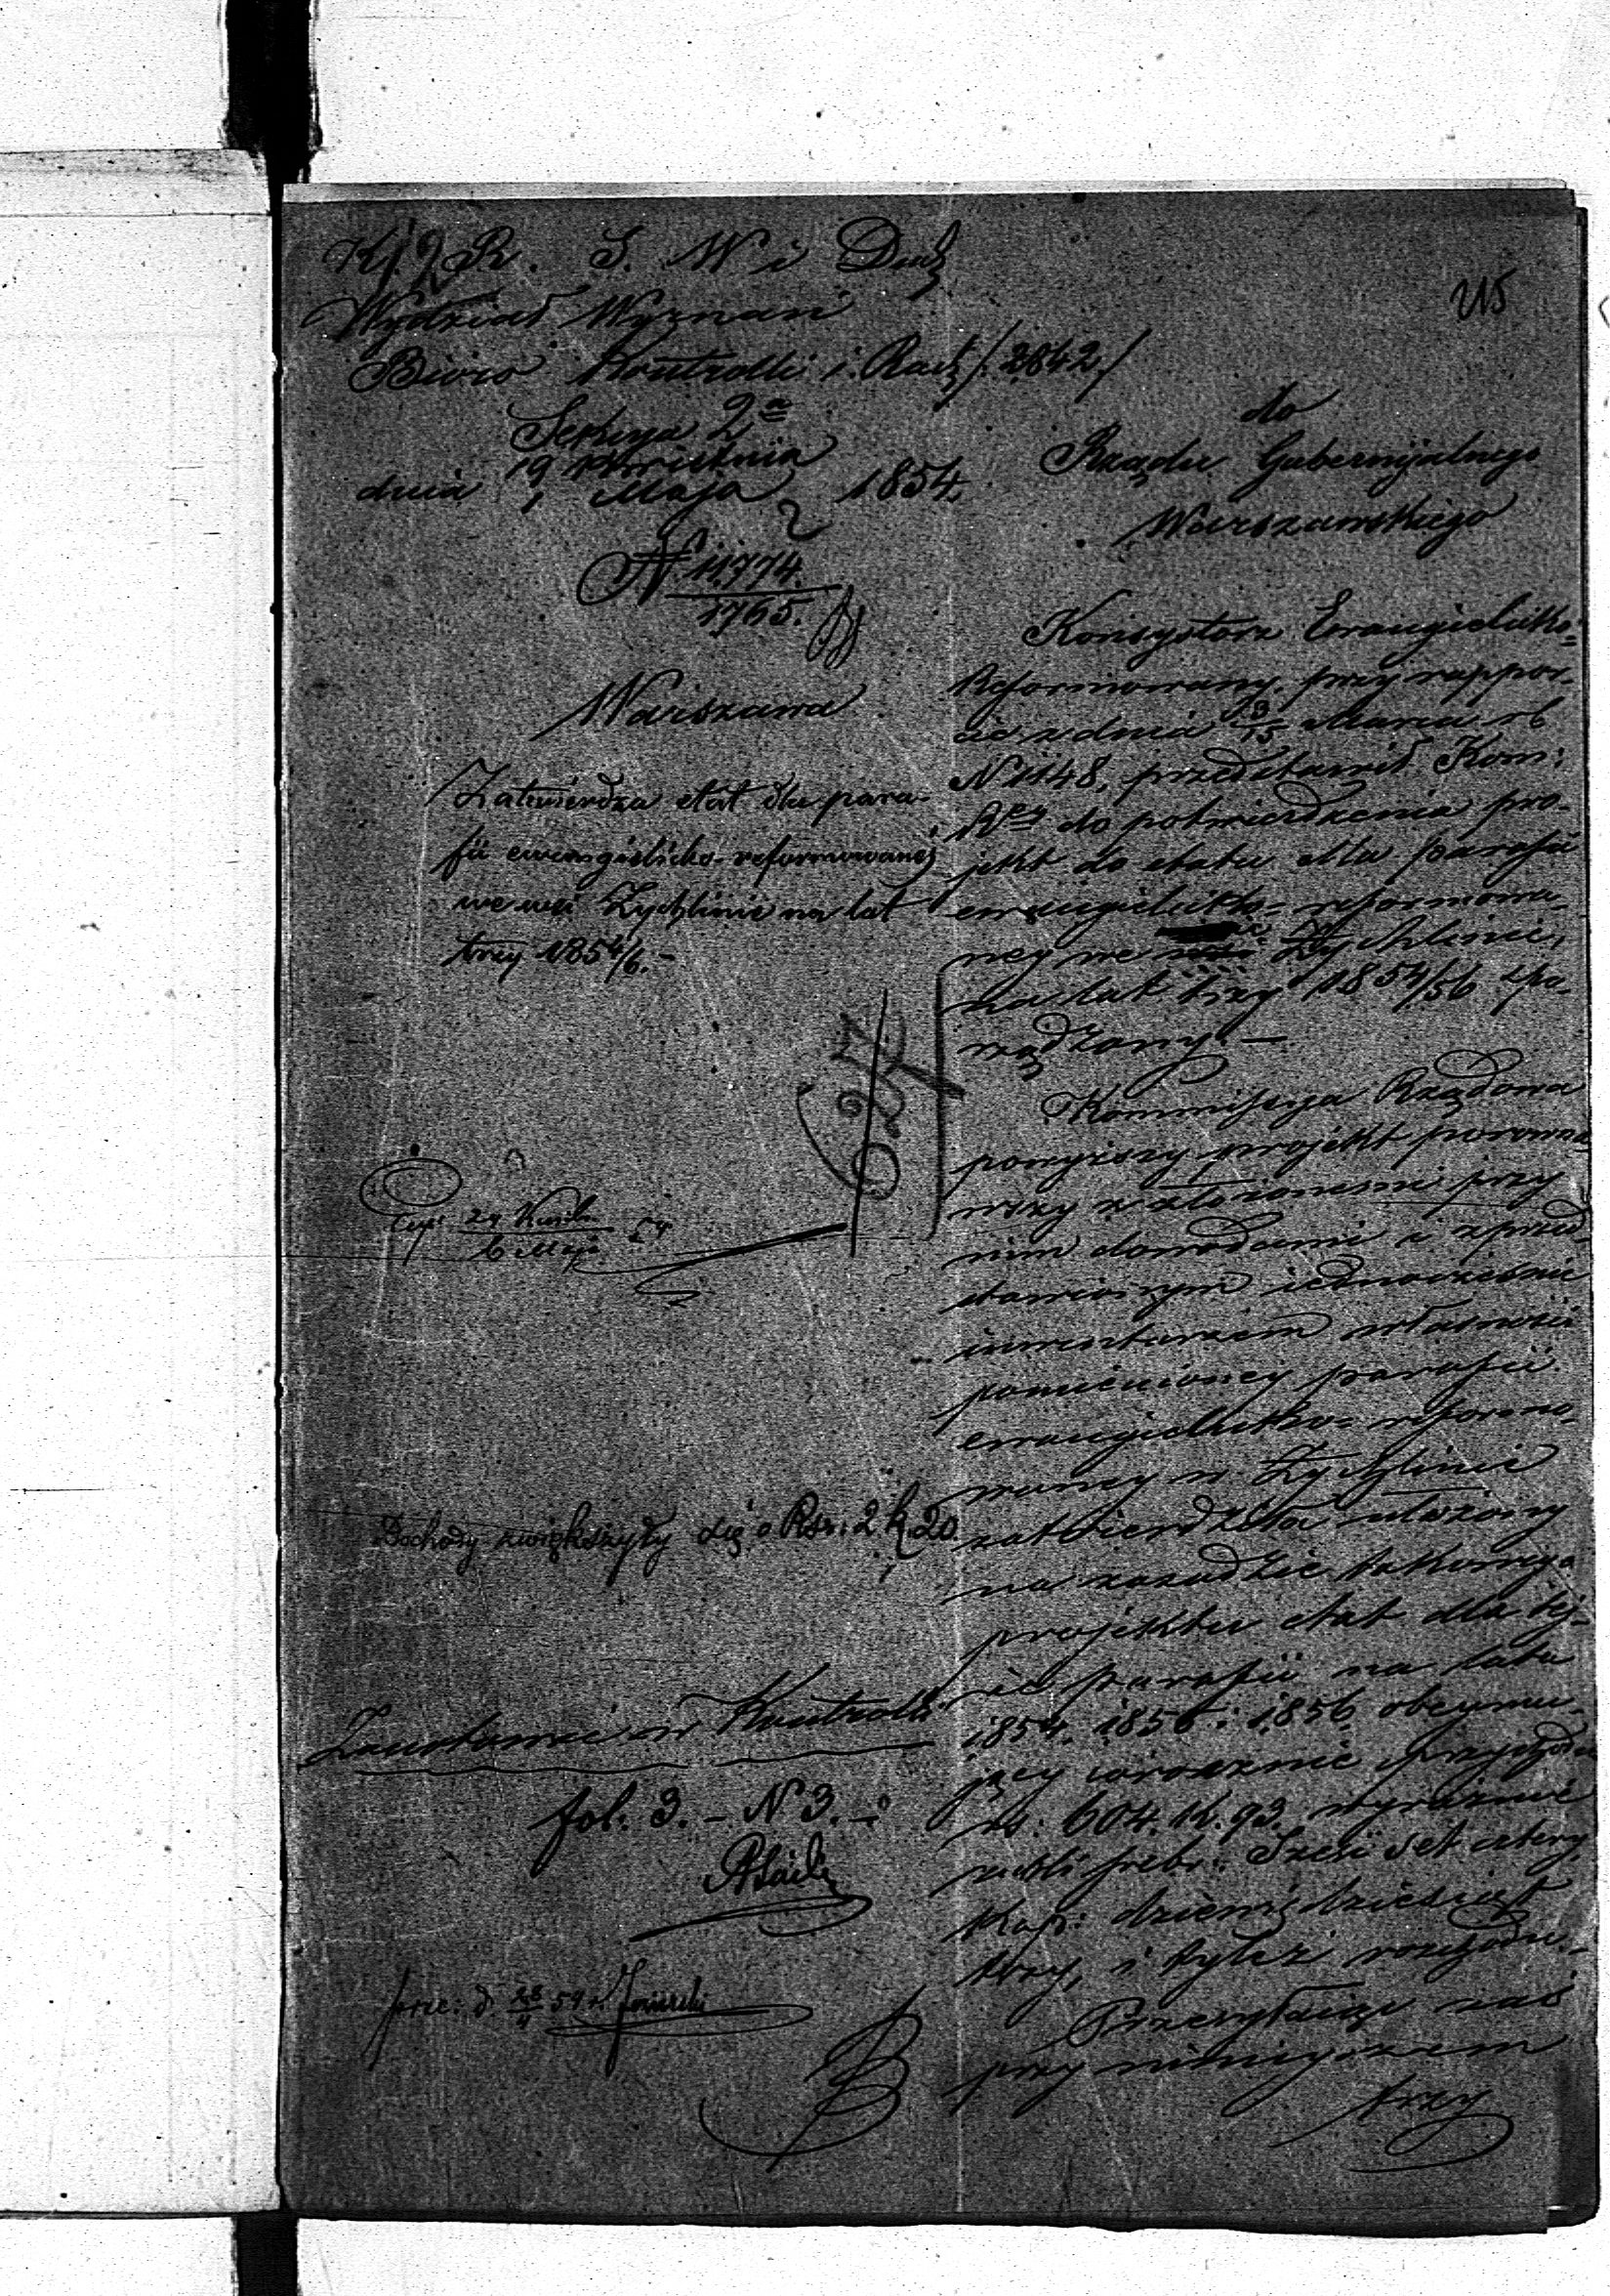 215
K. R. S. W i Duch
Wydział Wyznań
Bióro Kontrolli i Rach /2642/
Sekcya 2a
dnia 19 Kwietnia
1 Maja 1854
N 11774.
1765.
Warszawa
Zatwierdza etat dla para-
fii ewangielicko-reformowanej
we wsi Żychlinie na lat
trzy 1854/6.-
627
Exp: 24 Kwietn.
6 Maja 54
Dochody zwiększyły się o Rsr: 2 k 20
Zanotowano w Kontrolli
fol: 3. - N 3. -
do
Rządu Gubernijalnego
Warszawskiego
Konsystorz Ewangielicko-
Reformowany, przy rappor-
cie z dnia 3/15 Marca rb
N 1148, przedstawił Kom:
Rzą do potwierdzenia pro-
jekt do etatu dla parafii
ewangielicko-reformowa-
ney we Żychlinie,
na lat trzy 1854/56 spo-
rządzony. —
Kommissyja Rządowa
powyższy projekt porówna
wszy z złożonemi przy
nim dowodami i z przed-
stawionym jednocześnie
inwentarzem własności
pomienioney parafii
ewangielicko-reformo-
waney w Żychlinie
zatwierdziła ułożony
na zasadzie takowego
projektu etat dla tej-
że parafii na lata
1854. 1855 i 1856 obeymu-
jący corocznie przychodu
rs: 604. k. 93. wyraźnie
rubli srebr: Sześć set cztery
kop: dziewięćdziesiąt
trzy, i tyleż rozchodu. -
Przesyłając zaś
przy niniejszem
trzy